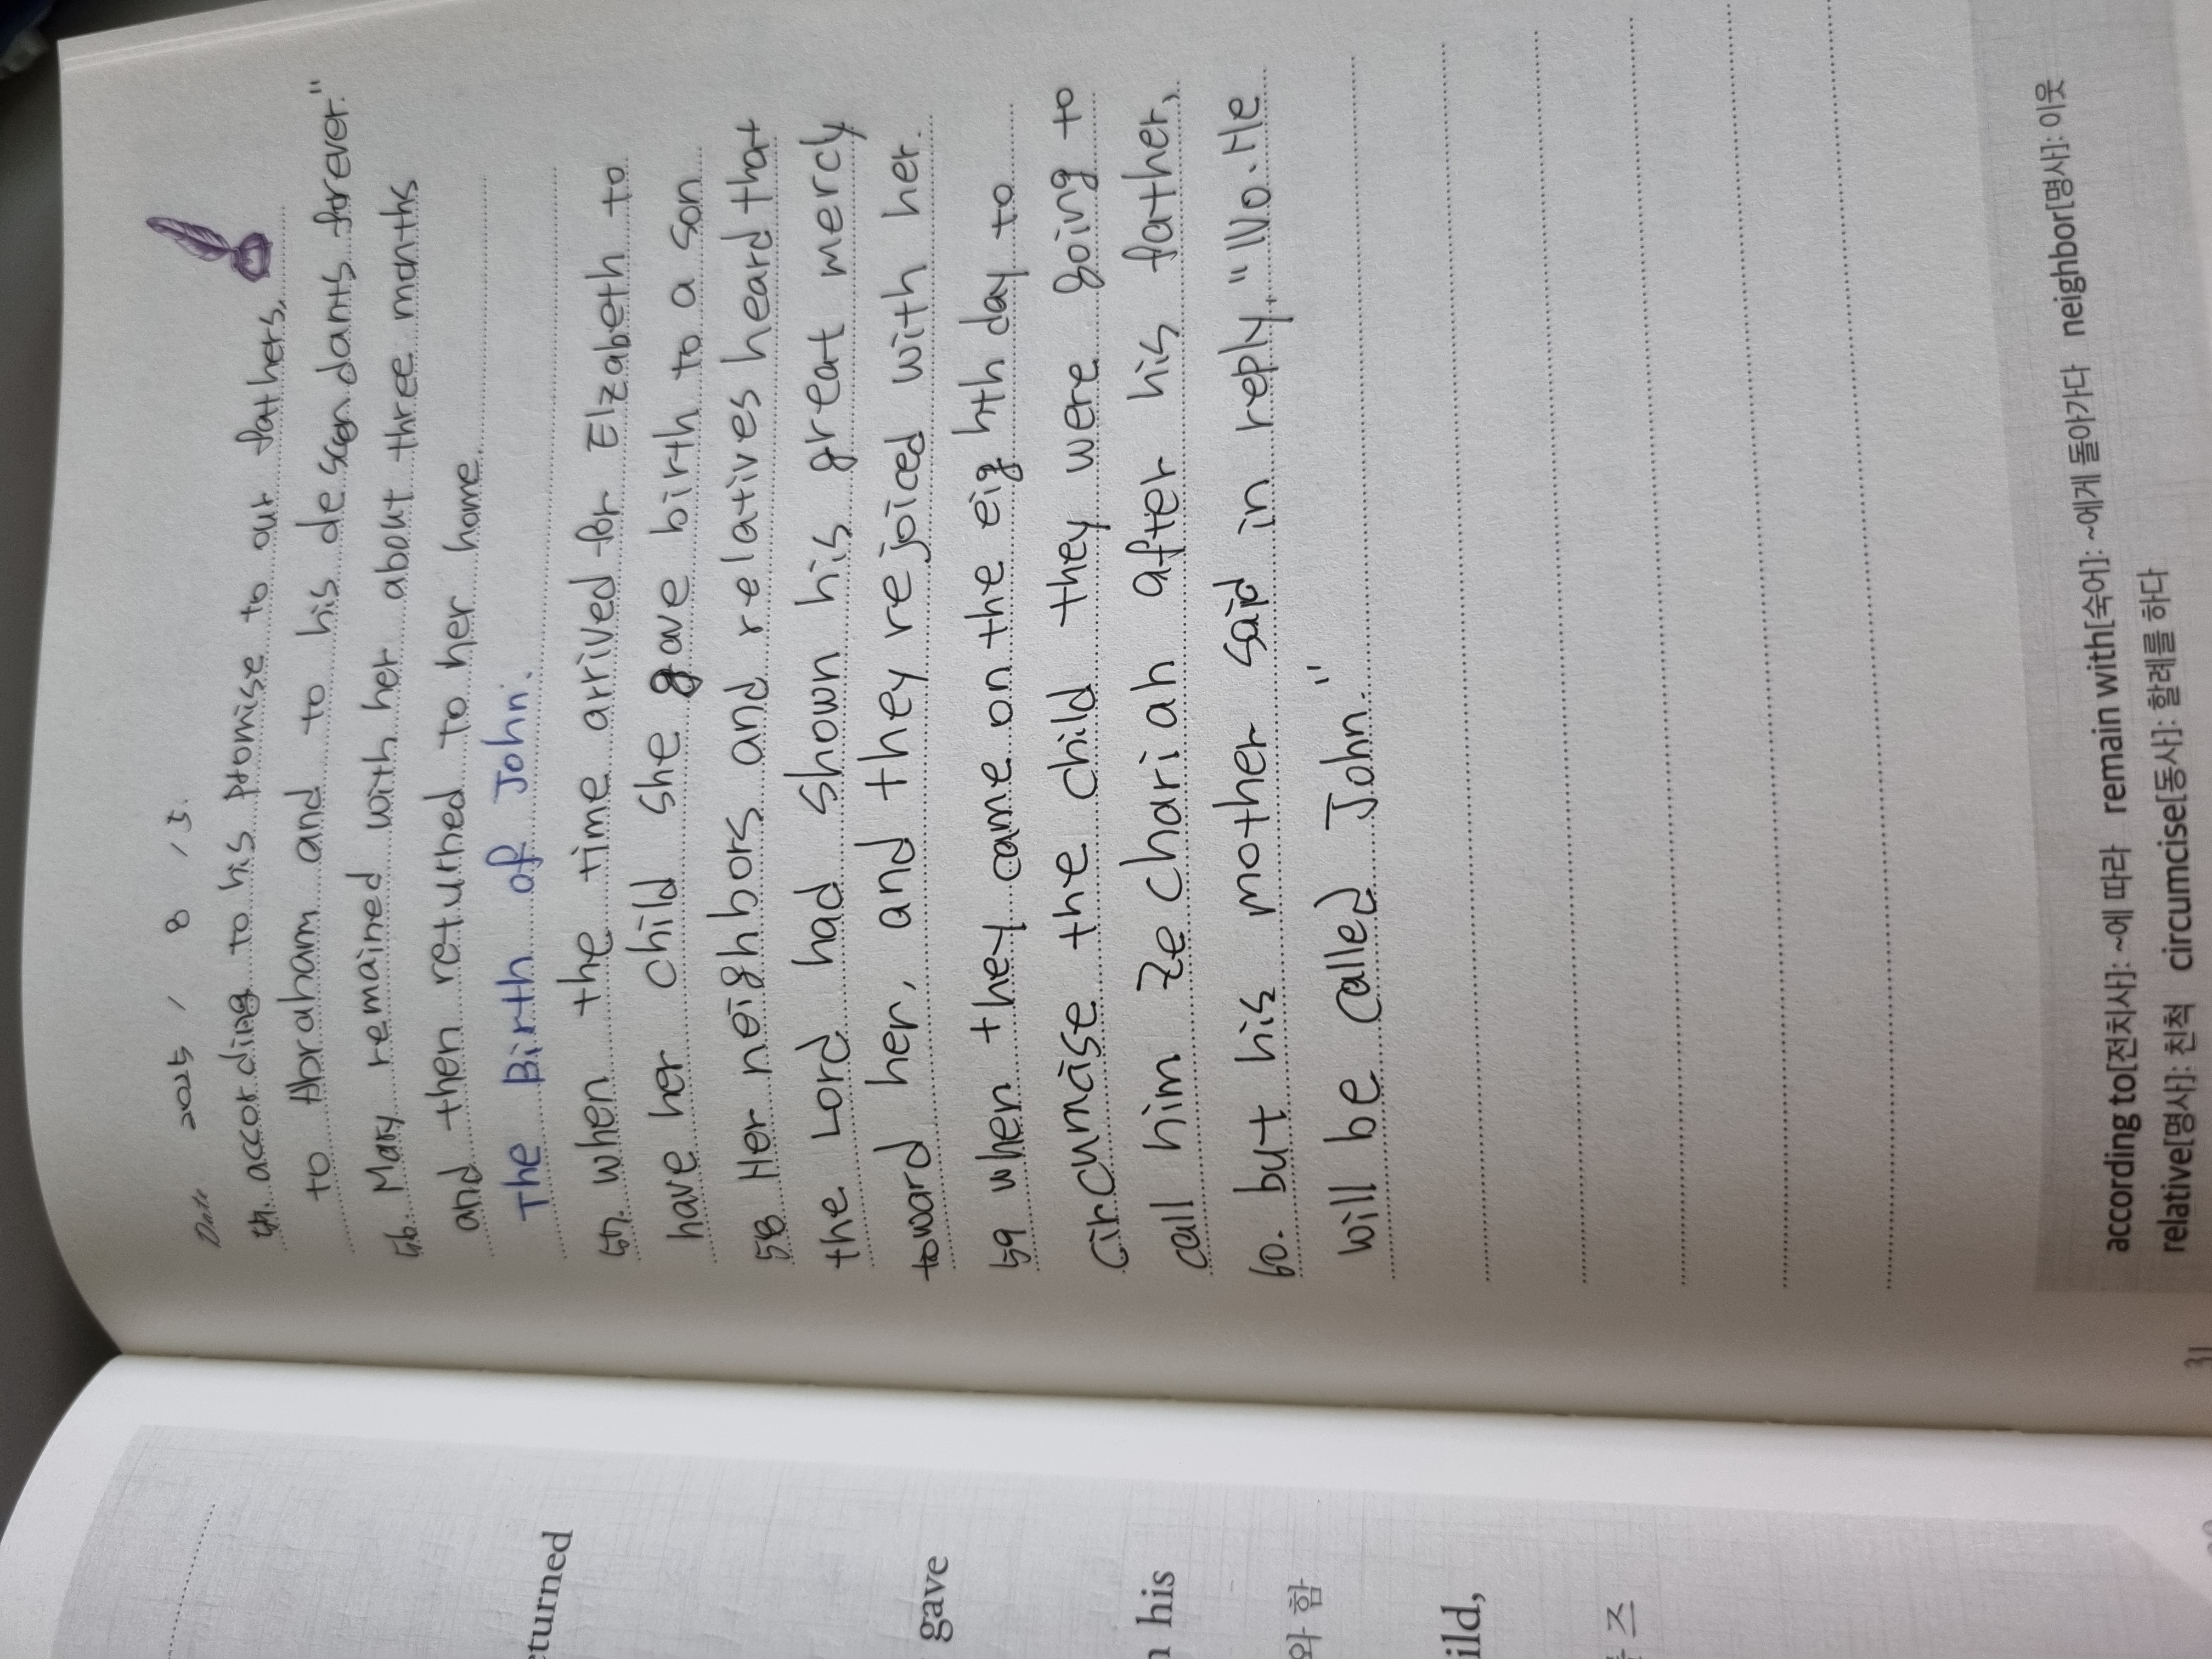 Date 2025 / 8 / 5.
55. according to his promise to our fathers,
to Abraham and to his descendants forever."
56. Mary remained with her about three months
and then returned to her home.
The Birth of John.
57. when the time arrived for Elzabeth to
have her child she gave birth to a son
58 Her neighbors and relatives heard that
the Lord had shown his great mercy
toward her, and they rejoiced with her.
59 when they came on the eighth day to
circumcise the child they were going to
call him Zechariah after his father,
60. but his mother said in reply, "No. He
will be called John."
according to[전치사]: ~에 따라 remain with[숙어]: ~에게 돌아가다 neighbor[명사]: 이웃
relative[명사]: 친척 circumcise[동사]: 할례를 하다
31
eturned
gave
his
와 함
ild,
즈